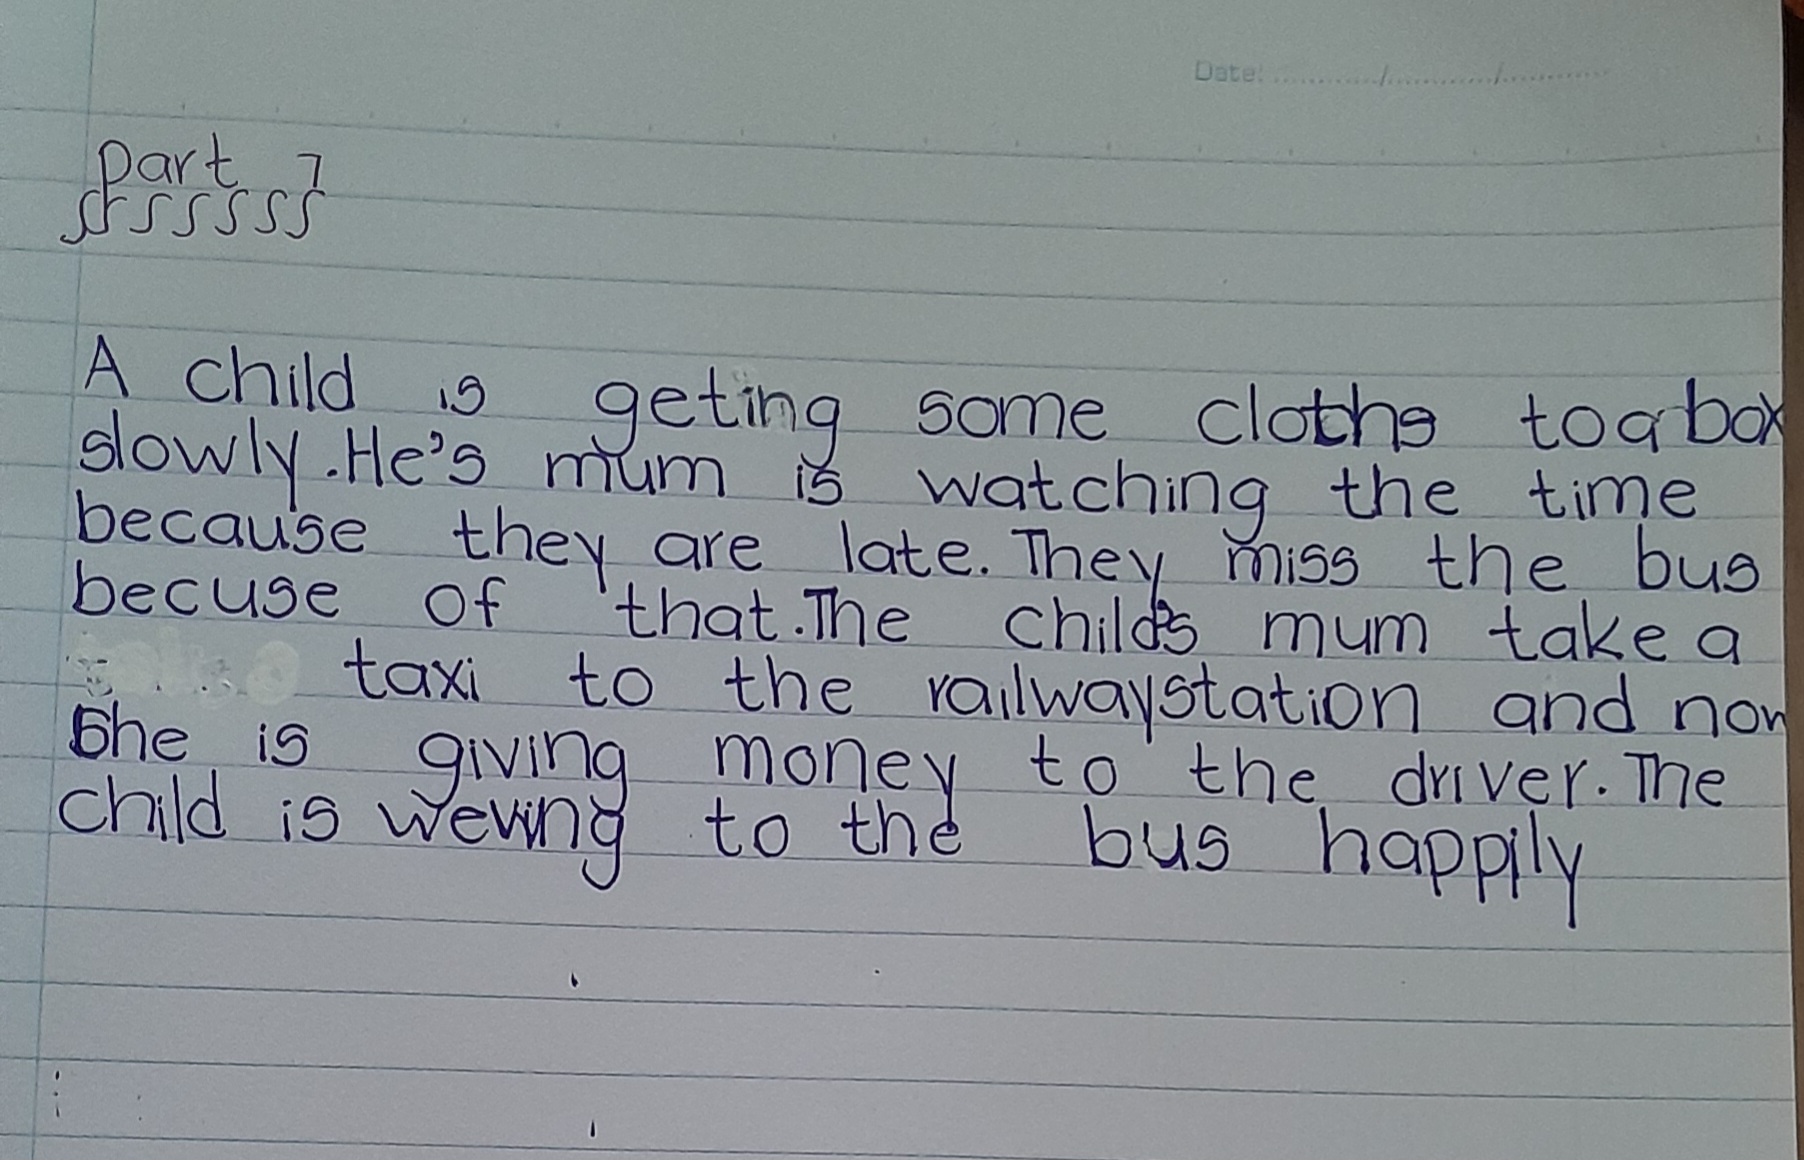 Date: ............/............/............
part 7
A child is geting some cloths to a box
slowly. He's mum is watching the time
because they are late. They miss the bus
becuse of that. The child's mum take a
taxi to the railwaystation and now
she is giving money to the driver. The
child is weving to the bus happily